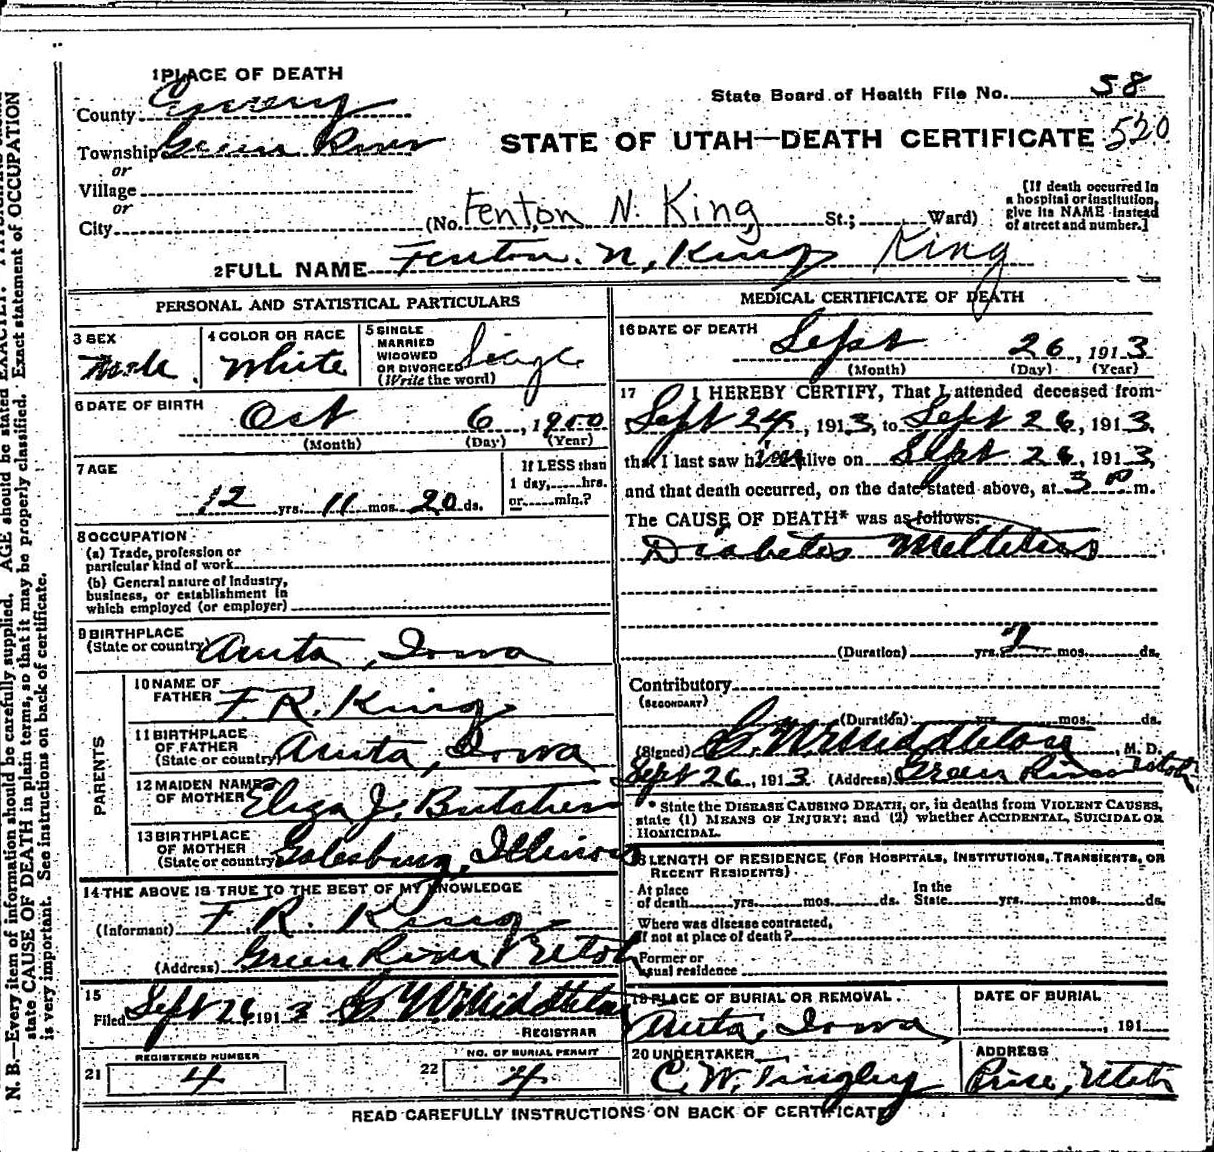 1 PLACE OF DEATH
County Emery
Township Green River
or
Village
or
City
State Board of Health File No. 58
STATE OF UTAH—DEATH CERTIFICATE 520
(No. Fenton N. King St.; Ward)
[If death occurred in
a hospital or institution,
give its NAME instead
of street and number.]
2 FULL NAME Fenton. N. King King
PERSONAL AND STATISTICAL PARTICULARS
3 SEX
Male
4 COLOR OR RACE
White
5 SINGLE
MARRIED
WIDOWED
OR DIVORCED
(Write the word)
Single
6 DATE OF BIRTH
Oct 6, 1900
(Month) (Day) (Year)
7 AGE
12 yrs. 11 mos. 20 ds.
If LESS than
1 day, hrs.
or min.?
8 OCCUPATION
(a) Trade, profession or
particular kind of work
(b) General nature of Industry,
business, or establishment in
which employed (or employer)
9 BIRTHPLACE
(State or country) Anita, Iowa
PARENTS
10 NAME OF
FATHER F. R. King
11 BIRTHPLACE
OF FATHER
(State or country) Anita, Iowa
12 MAIDEN NAME
OF MOTHER Eliza J. Butcher
13 BIRTHPLACE
OF MOTHER
(State or country) Galesburg, Illinois
14 THE ABOVE IS TRUE TO THE BEST OF MY KNOWLEDGE
(Informant) F. R. King
(Address) Green River Utah
15
Filed Sept 26 1913 Middleton
REGISTRAR
21 REGISTERED NUMBER
4
22 NO. OF BURIAL PERMIT
4
MEDICAL CERTIFICATE OF DEATH
16 DATE OF DEATH
Sept 26, 1913
(Month) (Day) (Year)
17 I HEREBY CERTIFY, That I attended deceased from
Sept 24, 1913, to Sept 26, 1913,
that I last saw him alive on Sept 26, 1913,
and that death occurred, on the date stated above, at 3 P m.
The CAUSE OF DEATH* was as follows:
Diabetes Mellitus
(Duration) yrs. 2 mos. ds.
Contributory
(SECONDARY)
(Duration) yrs. mos. ds.
(Signed) Middleton, M. D.
Sept 26, 1913 (Address) Green River Utah
* State the DISEASE CAUSING DEATH, or, in deaths from VIOLENT CAUSES,
state (1) MEANS OF INJURY; and (2) whether ACCIDENTAL, SUICIDAL OR
HOMICIDAL.
18 LENGTH OF RESIDENCE (FOR HOSPITALS, INSTITUTIONS, TRANSIENTS, OR
RECENT RESIDENTS)
At place
of death yrs. mos. ds.
In the
State yrs. mos. ds.
Where was disease contracted,
if not at place of death?
Former or
usual residence
19 PLACE OF BURIAL OR REMOVAL
Anita, Iowa
DATE OF BURIAL
, 191
20 UNDERTAKER
C. W. Tingley
ADDRESS
Price, Utah
READ CAREFULLY INSTRUCTIONS ON BACK OF CERTIFICATE
N. B.—Every item of information should be carefully supplied. AGE should be stated EXACTLY.
state CAUSE OF DEATH in plain terms, so that it may be properly classified. Exact statement of OCCUPATION
is very important. See instructions on back of certificate.